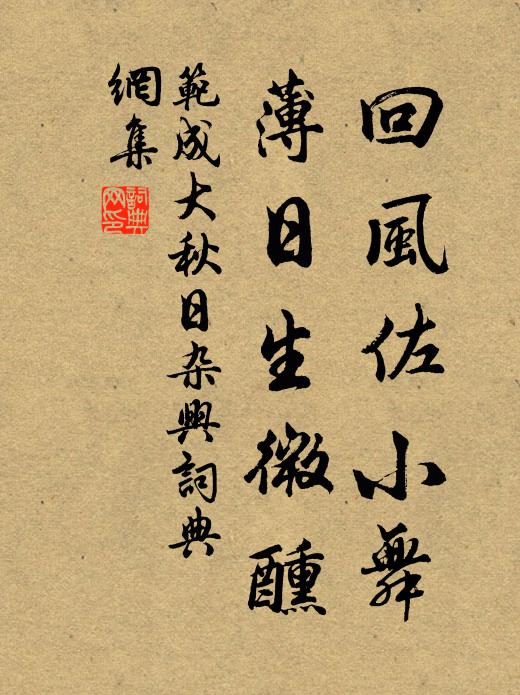 回風佐小舞
薄日生微醺
範成大秋日杂興詞典
網集
詞典
网印